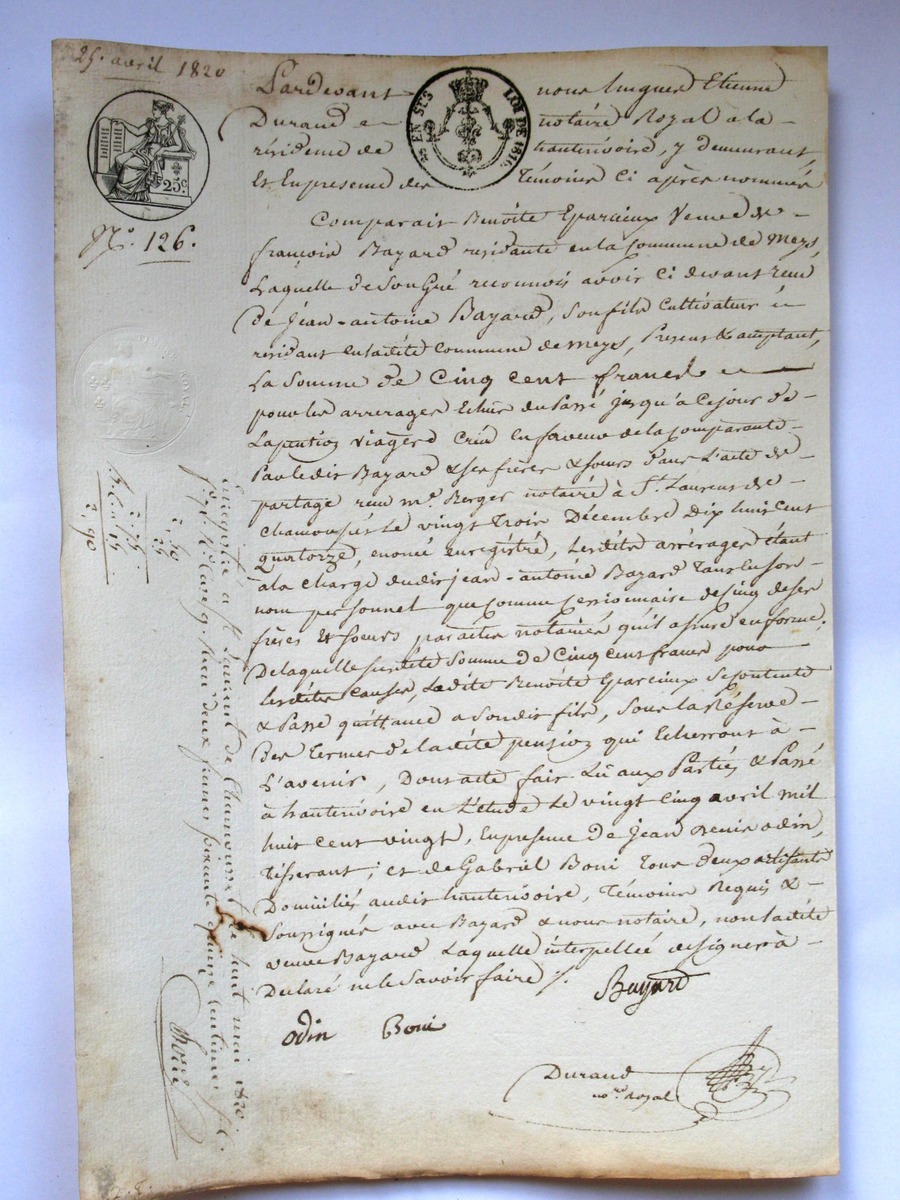 25. avril 1820
Pardevant nous hugues Etienne
Durand notaire Royal à la
résidence de hauterivoire, y demeurant,
Et En presence des témoins Ci après nommés
EN SUS LOI DE 1816.
25 c.
N.º 126.
Comparait Benoite Eparcieux Veuve de
françois Bayard residante en la Commune de Meys,
Laquelle de Son Gré reconnois avoir Ci devant reçu
de Jean-antoine Bayard, son fils Cultivateur
residant en ladite Commune de meys, Present & acceptant,
La Somme de Cinq Cent francs
pour les arrerages Echus du Passé jusqu'à Ce jour de
La pention viagere Créé en faveur de la Comparente
Par ledit Bayard & ses frères & sœurs dans L'acte de
partage reçu Mᵉ Berger notaire à Sᵗ Laurent de
Chamousset Le vingt trois Décembre Dix huit Cent
Quatorze, enregistré, Lesdits arrérages étant
a la Charge dudit jean-antoine Bayard Tant en son
nom personnel que Comme Cessionnaire de Cinq de ses
frères Et Soeurs par actes notariés qu'il assure en forme,
De laquelle susdite Somme de Cinq Cent francs pour
Lesdites Causes, Ladite Benoite Eparcieux Se contente
& Passe quittance a Son dit fils, Sous la Réserve
Des Termes de la dite pension qui Echerront à
L'avenir, Dont acte fait Lû aux Parties & Passé
à hauterivoire en L'étude Le vingt Cinq avril mil
huit Cent vingt, En presence de Jean denis odin,
tisserant; et de Gabriel Boni tous deux artisants
Domiciliés audit hauterivoire, Témoins Requis &
Soussignés avec Bayard & nous notaire, non ladite
veuve Bayard Laquelle interpellée de signer a
Déclaré ne le Savoir faire /.
Bayard
odin Boni
Durand
no.ʳᵉ royal
Enregistré a St Laurent de Chamousset le huit mai 1820.
reçu deux francs soixante quinze centimes
2,75
2,90